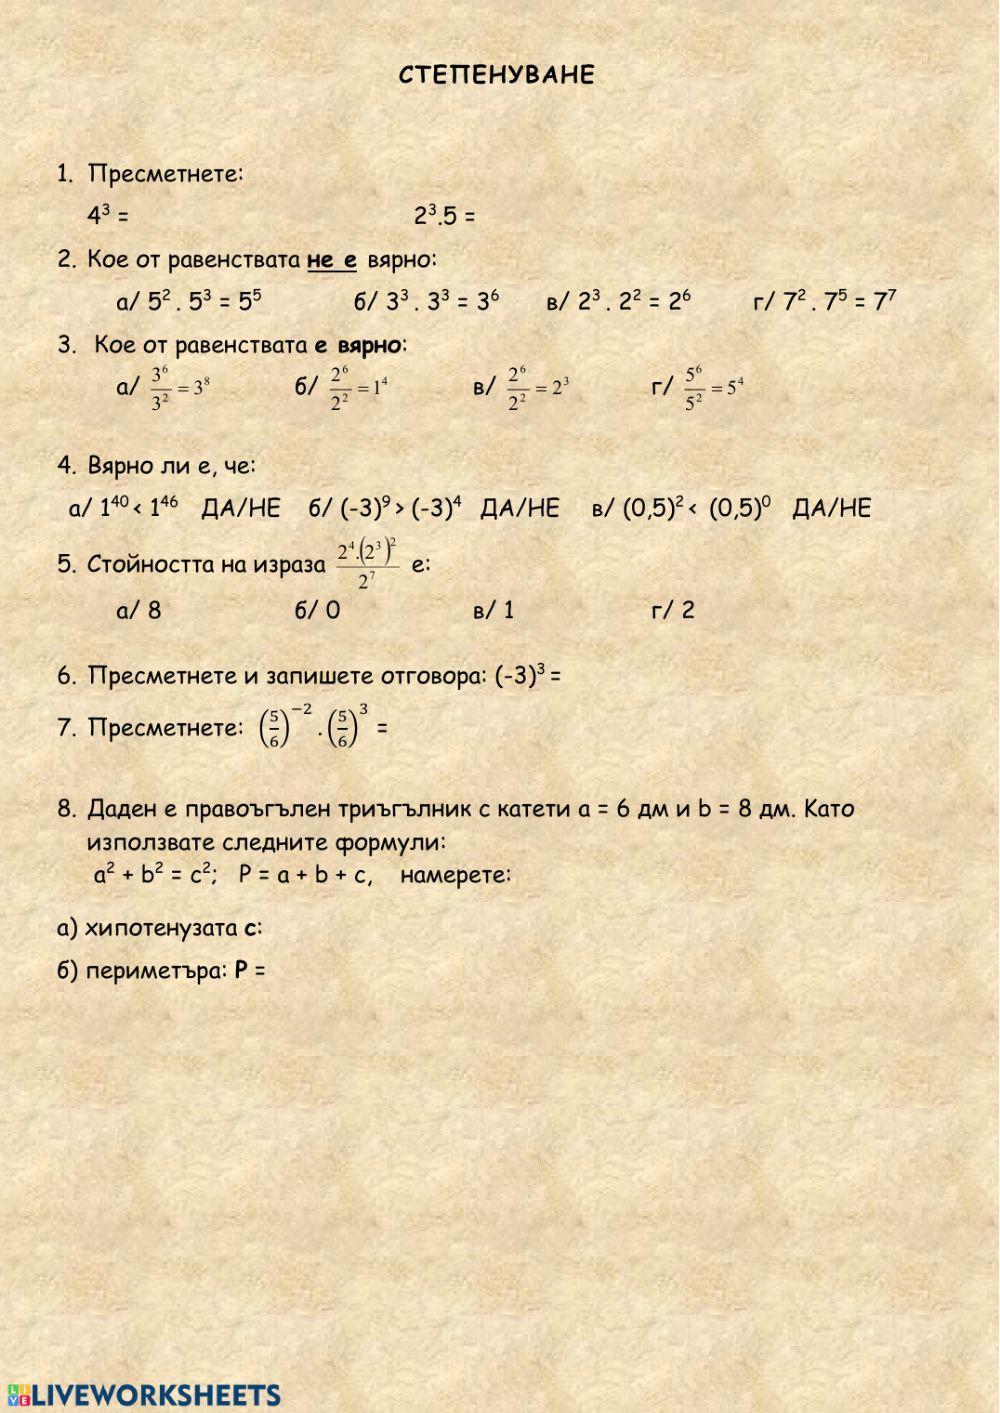 СТЕПЕНУВАНЕ
1. Пресметнете:
4³ = 2³.5 =
2. Кое от равенствата не е вярно:
а/ 5² . 5³ = 5⁵ б/ 3³ . 3³ = 3⁶ в/ 2³ . 2² = 2⁶ г/ 7² . 7⁵ = 7⁷
3. Кое от равенствата е вярно:
а/ 3⁶/3² = 3⁸ б/ 2⁶/2² = 1⁴ в/ 2⁶/2² = 2³ г/ 5⁶/5² = 5⁴
4. Вярно ли е, че:
а/ 1⁴⁰ < 1⁴⁶ ДА/НЕ б/ (-3)⁹ > (-3)⁴ ДА/НЕ в/ (0,5)² < (0,5)⁰ ДА/НЕ
5. Стойността на израза 2⁴.(2³)²/2⁷ е:
а/ 8 б/ 0 в/ 1 г/ 2
6. Пресметнете и запишете отговора: (-3)³ =
7. Пресметнете: (5/6)⁻² . (5/6)³ =
8. Даден е правоъгълен триъгълник с катети a = 6 дм и b = 8 дм. Като
използвате следните формули:
a² + b² = c²; P = a + b + c, намерете:
а) хипотенузата c:
б) периметъра: P =
LIVEWORKSHEETS